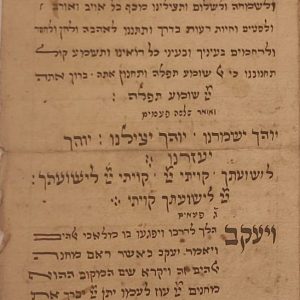 ולשמחה ולשלום ותצילינו מכף כל אויב ואורב
ולסטים וחיות רעות בדרך ותתננו לאהבה ולחן ולחסד
ולרחמים בעיניך ובעיני כל רואינו ותשמע קול
תחנוננו כי שומע תפלה ותחנון אתה ברוך אתה
שומע תפלה :
ואומר שלשה פעמים
יוהך ישמרנו : יוהך יצילנו : יוהך
יעזרנו
לישועתך קויתי קויתי לישועתך :
לישועתך קויתי :
ג פעמים
ויעקב הלך לדרכו ויפגעו בו מלאכי
ויאמר יעקב כאשר ראם מחנה
זה ויקרא שם המקום ההוא
מחנים עוז לעמו יתן יברך את